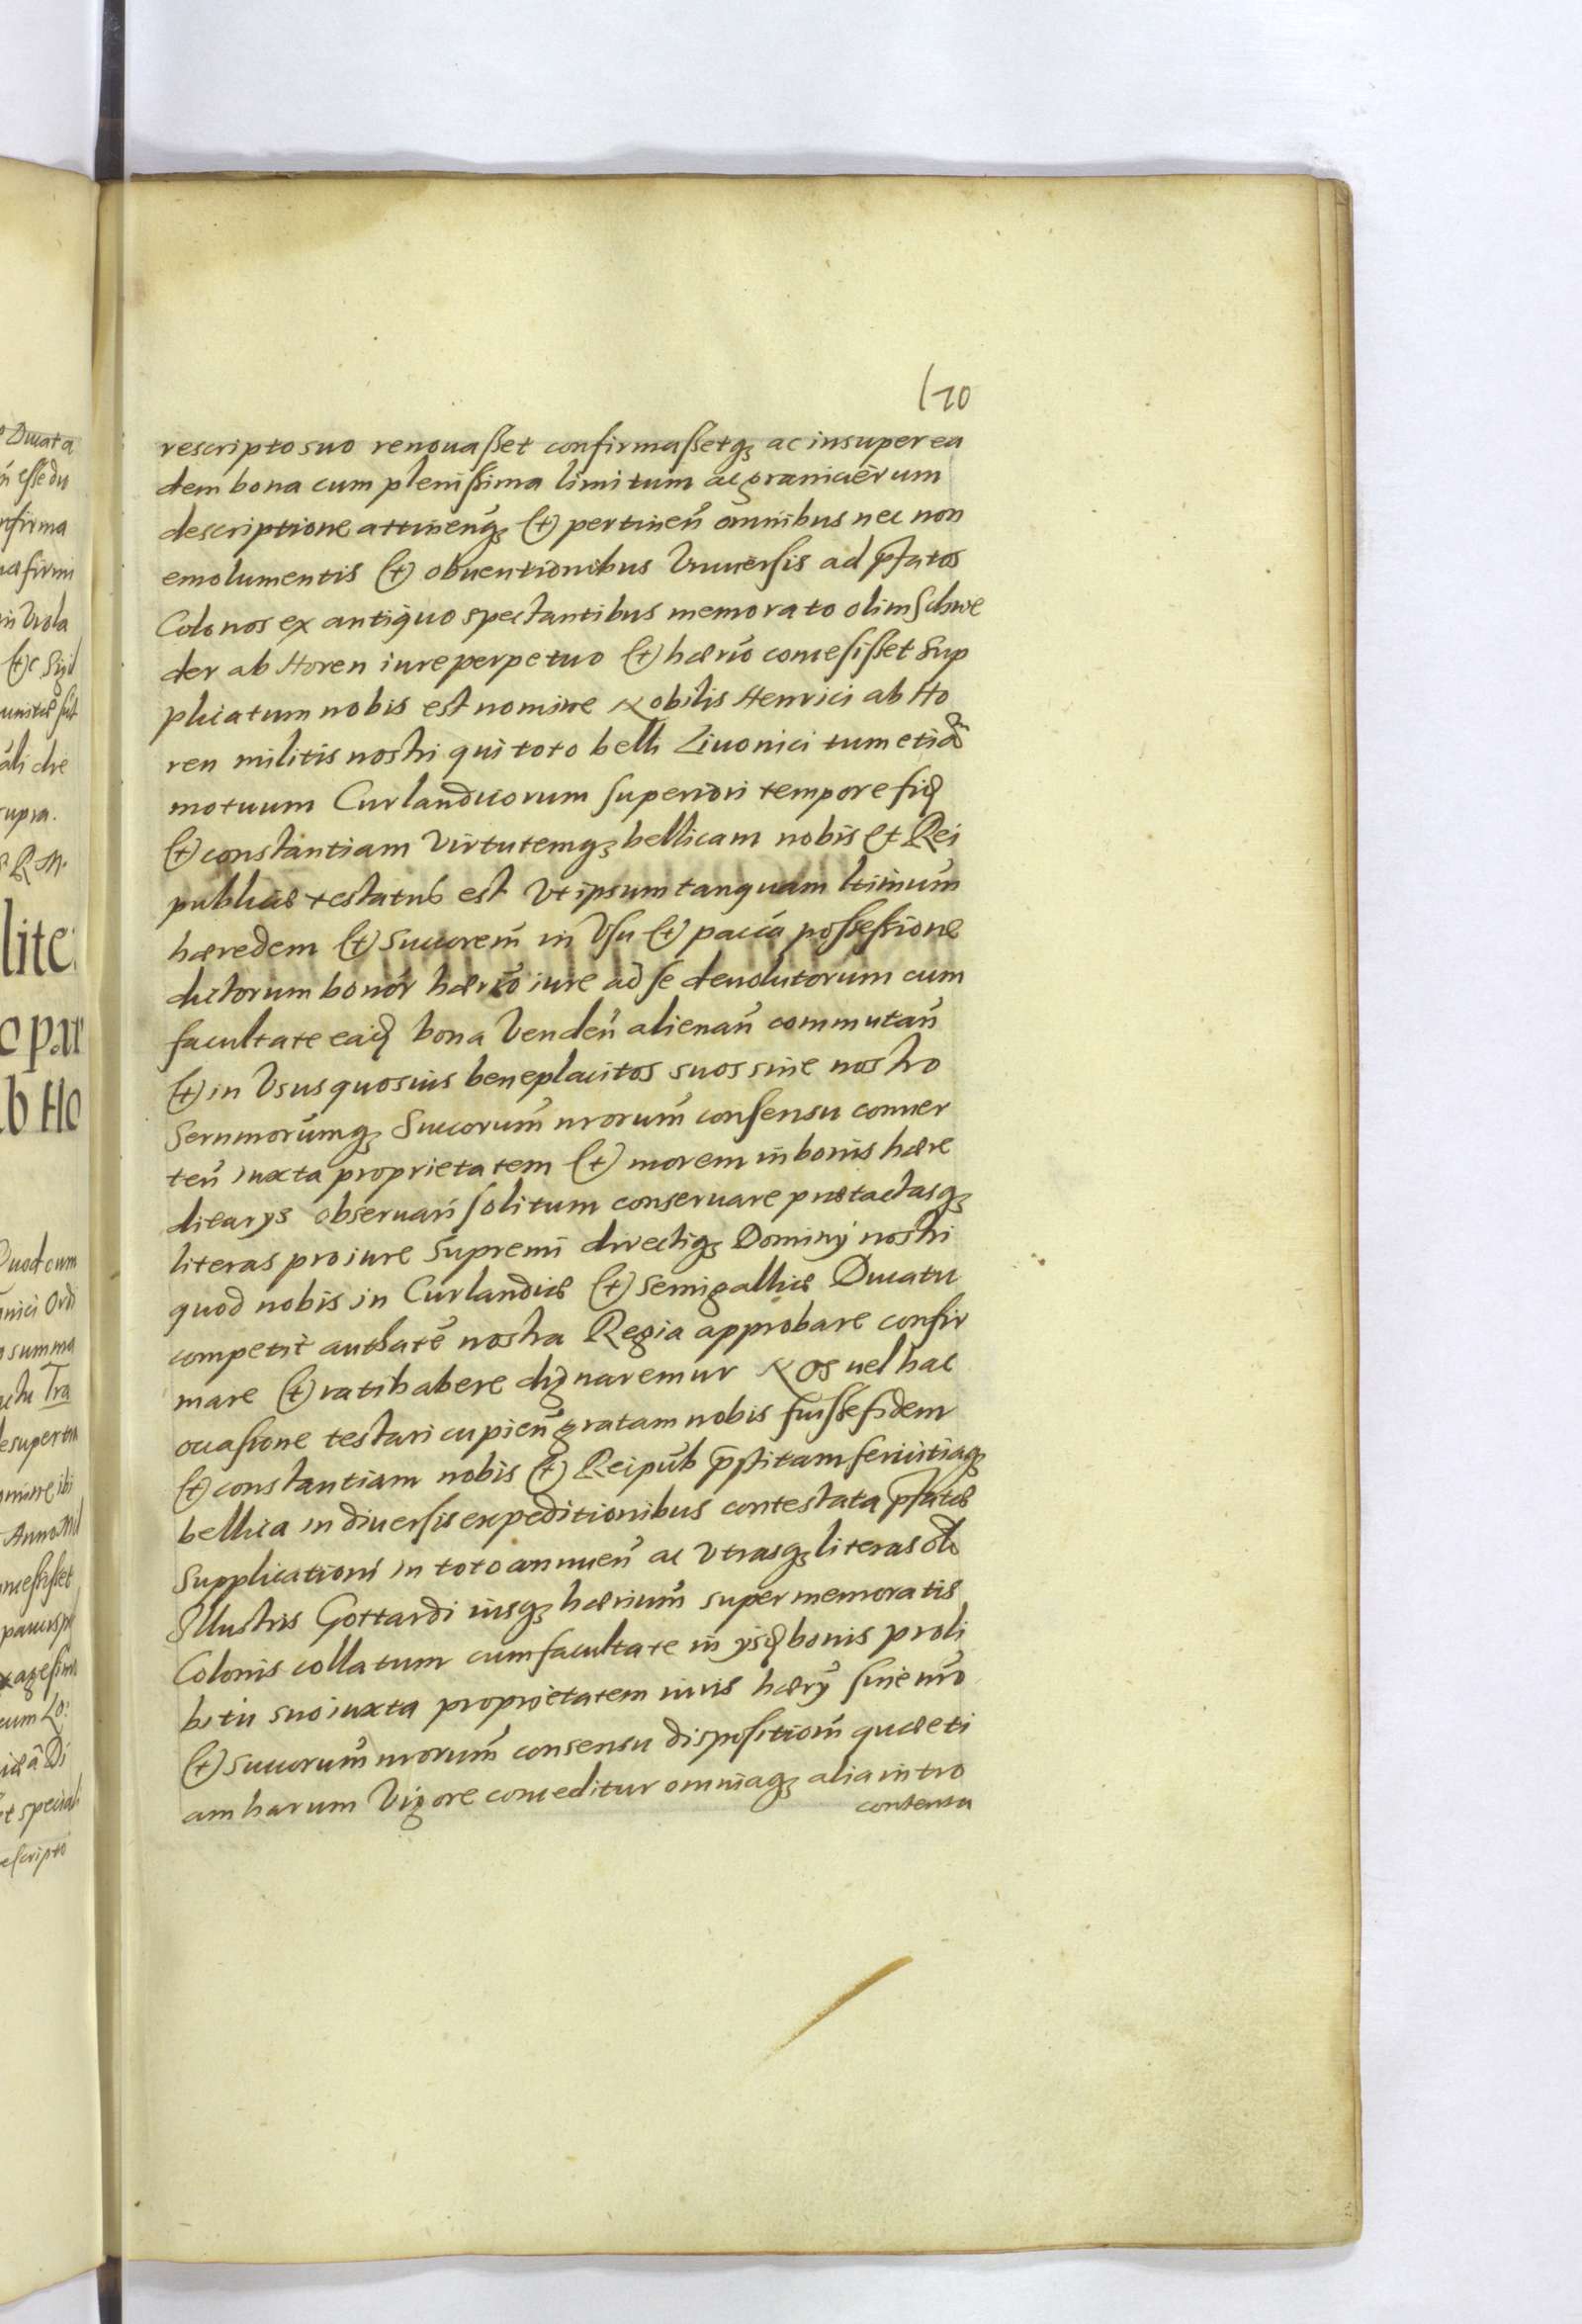 170
rescripto suo renouasset confirmassetq3 ac insuper ea
dem bona cum plenissima limitum ac granicierum
descriptione attineñq3 et pertineñ omnibus nec non
emolumentis et obuentionibus Vniuersis ad p̃fatos
Colonos ex antiquo spectantibus memorato olim Schwe
der ab Horen iure perpetuo et hærio concesisset Sup
plicatum nobis est nomine Nobilis Henrici ab Ho
ren militis nostri qui toto belli Liuonici tum etiam
motuum Curlandicorum superiori tempore fid
et constantiam Virtutemq3 bellicam nobis et Rei
publicæ testatus est Vt ipsum tanquam ltimum
hæredem et Succorem̃ in Vsu et pacca possessione
dictorum bonor hærio iure ad se deuolutorum cum
facultate eaid bona Vendeñ alienañ commutañ
et in Vsus quosuis beneplacitos suos sine nostro
Sernmorumq3 Succorum̃ nrorum̃ consensu conuer
teñ iuxta proprietatem et morem in bonis hære
ditarys obseruari solitum conseruare prætactasq3
literas pro iure supremi directiq3 Dominy nostri
quod nobis in Curlandiæ et Semigalliæ Ducatu
competit authate nostra Regia approbare confir
mare et ratihabere dignaremur Nos uel hac
occasione testari cupieñ gratam nobis fuisse fidem
et constantiam nobis et Reipub p̃stitam seruitiaq3
bellica in diuersis expeditionibus contestata p̃fatæ
Supplicationi in toto annueñ ac Vtrasq3 literas olim
Illustris Gottardi iusq3 hærium̃ super memoratis
Colonis collatum cum facultate in ysd bonis pro li
bitu suo iuxta proprietatem iuris hæry sine nro
et succorum̃ nrorum̃ consensu dispositiom̃ quæ eti
am harum Vigore conceditur omniaq3 alia in tro
contenta